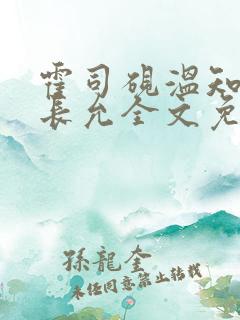 霍司砚温知
長允全文免
孫龍奎
未经同意禁止转载